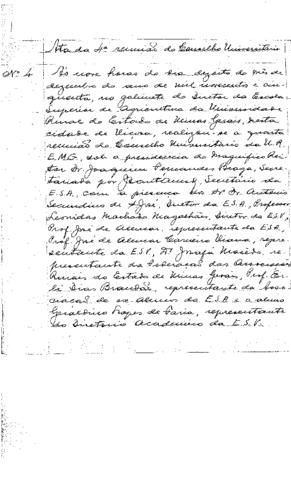 Ata da 4ª reunião do Conselho Universitário
Nº 4 Às nove horas do dia dezoito do mês de
dezembro do ano de mil novecentos e cin-
quenta, no gabinete do Diretor da Escola
Superior de Agricultura da Universidade
Rural do Estado de Minas Gerais, nesta
cidade de Viçosa, realizou-se a quarta
reunião do Conselho Universitário da U.R.
E.M.G., sob a presidencia do Magnífico Rei-
tor Dr. Joaquim Fernandes Braga, Secre-
tariada por Secretário da
E.S.A., com a presença dos Dr. Antônio
Secundino de S. José, Diretor da E.S.A., Professor
Leonidas Machado Magalhães, Diretor da E.S.V.,
Prof. José de Alencar, representante da E.S.A.,
Prof. José de Alencar Carneiro Viana, repre-
sentante da E.S.V., Dr. Josafá Macedo, re-
presentante da Federação das Associações
Rurais do Estado de Minas Gerais, Prof. Er-
li Dias Brandão, representante da Asso-
ciação de ex-Alunos da E.S.A. e o aluno
Geraldino de Faria, representante
do Diretório Academico da E.S.V.